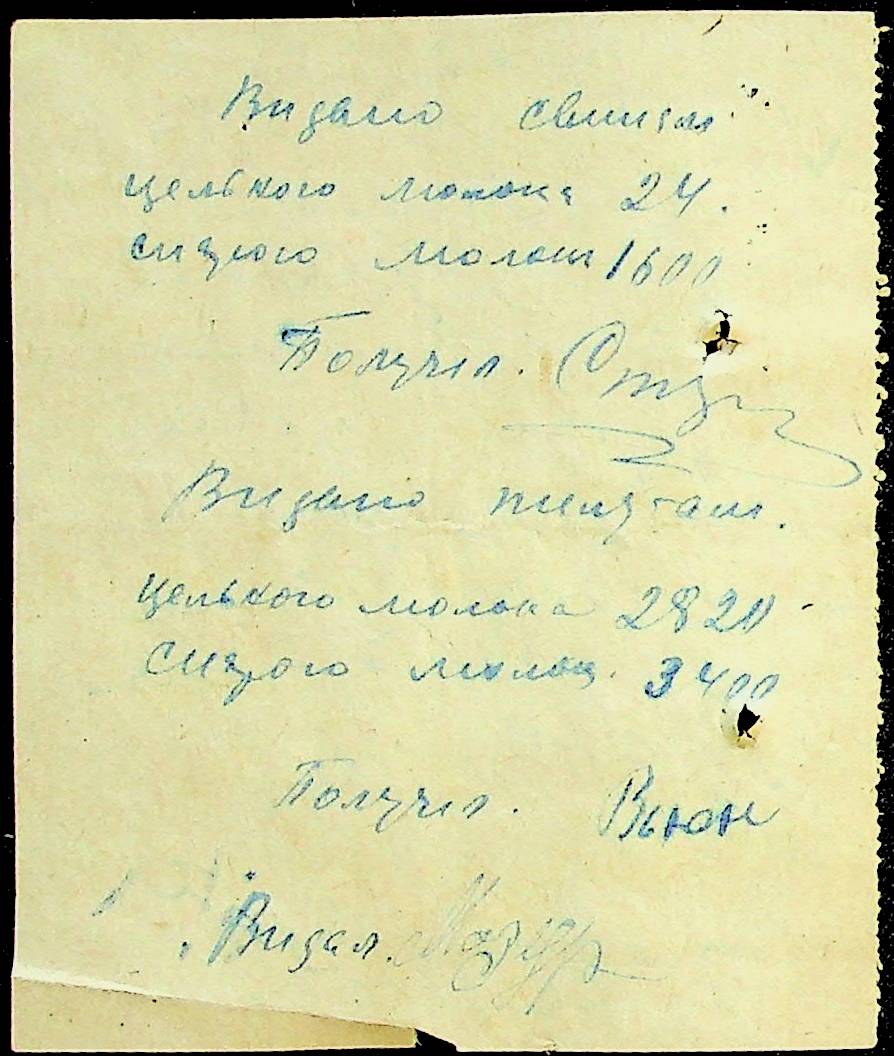 Видано свиням
цельного молока 24.
сизого молока 1600
Получил.
Видано телятам.
цельного молока 2820
сизого молока 3400
Получил. Вьюн
Видал. Мазур